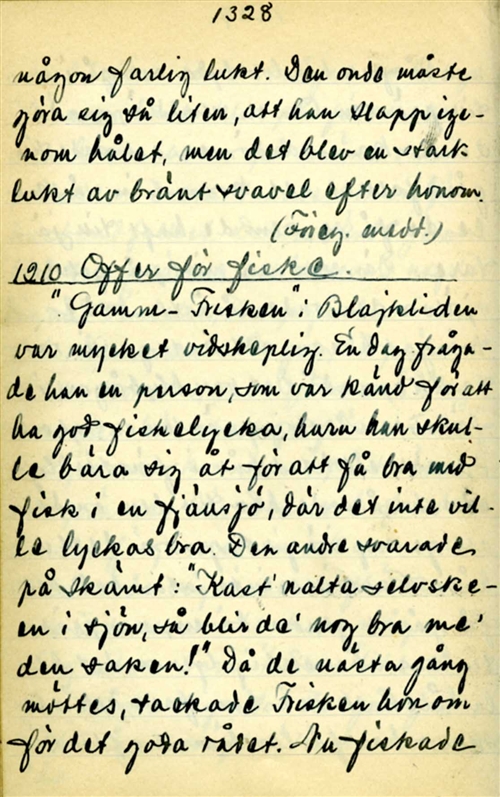 1328
någon farlig lukt. Den onde måste
göra sig så liten, att han slapp ige-
nom hålet, men det blev en stark
lukt av bränt svavel efter honom.
(Föreg. medd.)
1210 Offer för fiske.
"Gamm-Frisken" i Blajkliden
var mycket vidskeplig. En dag fråga-
de han en person, som var känd för att
ha god fiskelycka, huru han skul-
le bära sig åt för att få bra med
fisk i en fjänsjö, där det inte vil-
le lyckas bra. Den andre svarade
på skämt: "Kast' nalta selvske-
en i sjön, så blir de' nog bra me'
den saken!" Då de nästa gång
möttes, tackade Frisken honom
för det goda rådet. Nu fiskade